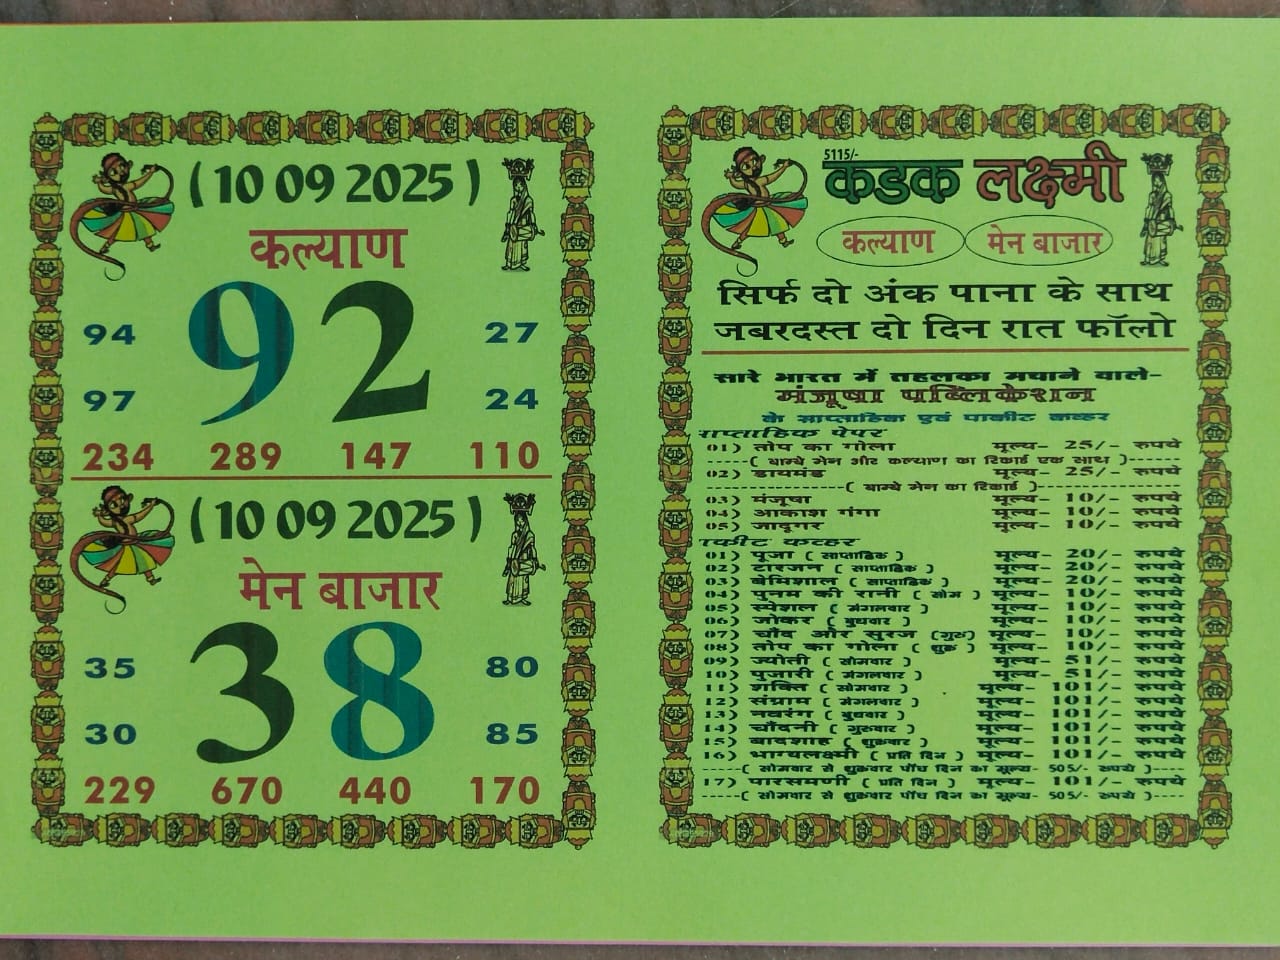 ( 10 09 2025 )
कल्याण
92
94
27
97
24
234 289 147 110
( 10 09 2025 )
मेन बाजार
38
35
80
30
85
229 670 440 170
5115/-
कडक लक्ष्मी
कल्याण मेन बाजार
सिर्फ दो अंक पाना के साथ
जबरदस्त दो दिन रात फॉलो
सारे भारत में तहलका मचाने वाले-
मंजूषा पब्लिकेशन
के साप्ताहिक एवं पाकीट कव्हर
साप्ताहिक पेपर
01) तोप का गोला मूल्य- 25/- रुपये
-----( बाम्बे मेन और कल्याण का रिकार्ड एक साथ )-----
02) डायमंड मूल्य- 25/- रुपये
---------------( बाम्बे मेन का रिकार्ड )---------------
03) मंजूषा मूल्य- 10/- रुपये
04) आकाश गंगा मूल्य- 10/- रुपये
05) जादूगर मूल्य- 10/- रुपये
पाकीट कव्हर
01) पूजा ( साप्ताहिक ) मूल्य- 20/- रुपये
02) टारजन ( साप्ताहिक ) मूल्य- 20/- रुपये
03) बेमिशाल ( साप्ताहिक ) मूल्य- 20/- रुपये
04) पुनम की रानी ( सोम ) मूल्य- 10/- रुपये
05) स्पेशल ( मंगलवार ) मूल्य- 10/- रुपये
06) जोकर ( बुधवार ) मूल्य- 10/- रुपये
07) चाँद और सुरज (गुरु) मूल्य- 10/- रुपये
08) तोप का गोला ( शुक्र ) मूल्य- 10/- रुपये
09) ज्योती ( सोमवार ) मूल्य- 51/- रुपये
10) पुजारी ( मंगलवार ) मूल्य- 51/- रुपये
11) शक्ति ( सोमवार ) मूल्य- 101/- रुपये
12) संग्राम ( मंगलवार ) मूल्य- 101/- रुपये
13) नवरंग ( बुधवार ) मूल्य- 101/- रुपये
14) चाँदनी ( गुरुवार ) मूल्य- 101/- रुपये
15) बादशाह ( शुक्रवार ) मूल्य- 101/- रुपये
16) भाग्यलक्ष्मी ( प्रति दिन ) मूल्य- 101/- रुपये
-----( सोमवार से शुक्रवार पाँच दिन का मूल्य- 505/- रुपये )----
17) पारसमणी ( प्रति दिन ) मूल्य- 101/- रुपये
-----( सोमवार से शुक्रवार पाँच दिन का मूल्य- 505/- रुपये )----